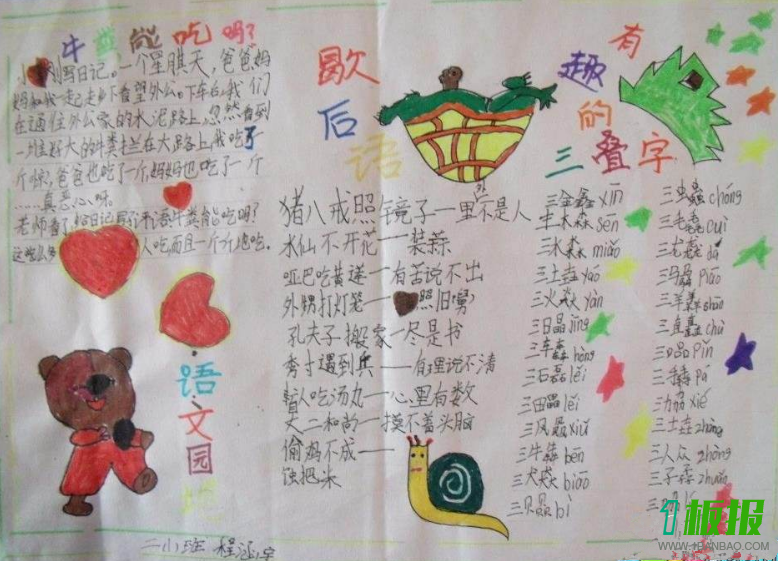 牛粪能吃吗?
小刚写日记。一个星期天,爸爸妈
妈和我一起走乡下看望外公。下车后,我们
在通往外公家的水泥路上,忽然看到
一堆好大的牛粪拦在大路上,我吃了
个惊,爸爸也吃了一个,妈妈也吃了一个
……真恶心呀。
老师看了给日记写评语:牛粪能吃吗?
这么多人吃而且一个个地吃。
语文园地
歇后语
猪八戒照镜子一里不是人
水仙不开花一装蒜
哑巴吃黄连一有苦说不出
外甥打灯笼一照旧舅?
孔夫子搬家一尽是书
秀才遇到兵一有理说不清
盲人吃汤丸一心里有数
丈二和尚一摸不着头脑
偷鸡不成一
蚀把米
有趣的三叠字
三金鑫xīn
三木森sēn
三水淼miǎo
三土垚yáo
三火焱yàn
三日晶jīng
三车轰hōng
三石磊lěi
三田畾lěi
三风飍xiū
三牛犇bēn
三犬猋biāo
三贝贔bì
三虫蟲chóng
三毛毳cuì
三龙龘dá
三马驫piāo
三羊羴shān
三直矗chù
三口品pǐn
三力劦xié
三人众zhòng
三子孨zhuǎn
二小班 程
板报
WWW.1BANBAO.COM